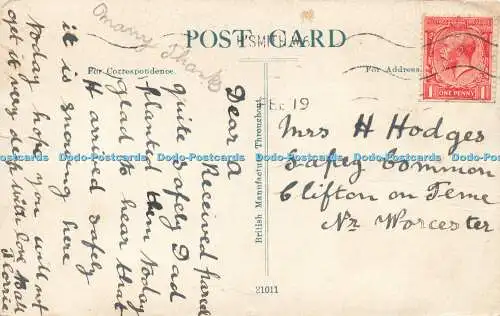 many Thanks
POST CARD
For Correspondence.
For Address.
ONE PENNY
19
Dear A
Received parcel
quite safely Dad
planted them today
glad to hear that
H arrived safely
it is snowing here
today hope you will not
get it very deep with love
Florrie
British Manufacture Throughout.
21011
Mrs H Hodges
Sapey Common
Clifton on Teme
Nr Worcester
Dodo-Postcards Dodo-Postcards Dodo-Postcards Dodo-Postcards